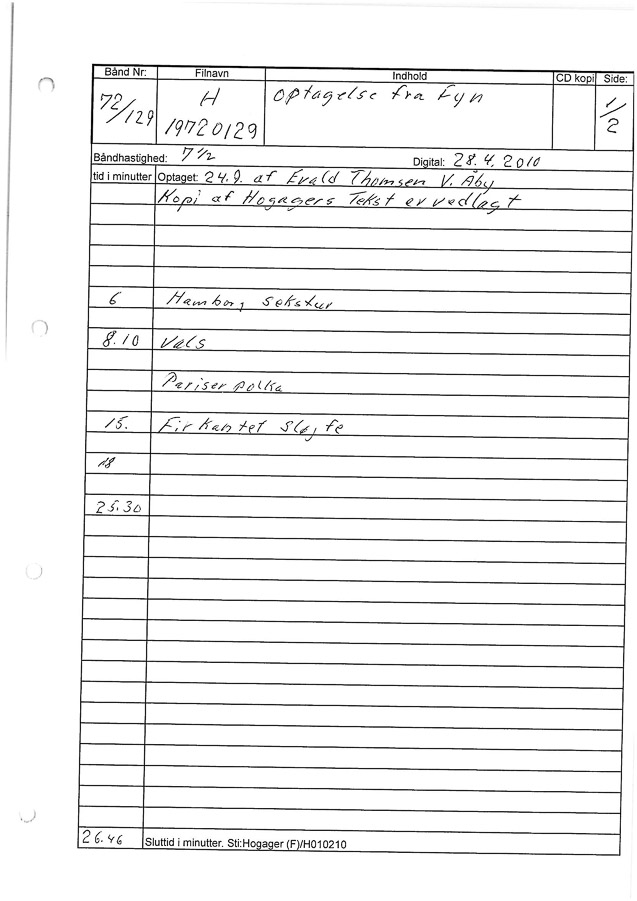 Bånd Nr: Filnavn Indhold CD kopi Side:
72/129 H optagelse fra Fyn 1/2
19720129
Båndhastighed: 7 1/2 Digital: 28.4.2010
tid i minutter Optaget: 24.9. af Evald Thomsen V. Åby
Kopi af Hogagers Tekst er vedlagt
6 Hamborg sekstur
8.10 Vals
Pariser polka
15. Firkantet sløjfe
18
25.30
26.46 Sluttid i minutter. Sti:Hogager (F)/H010210